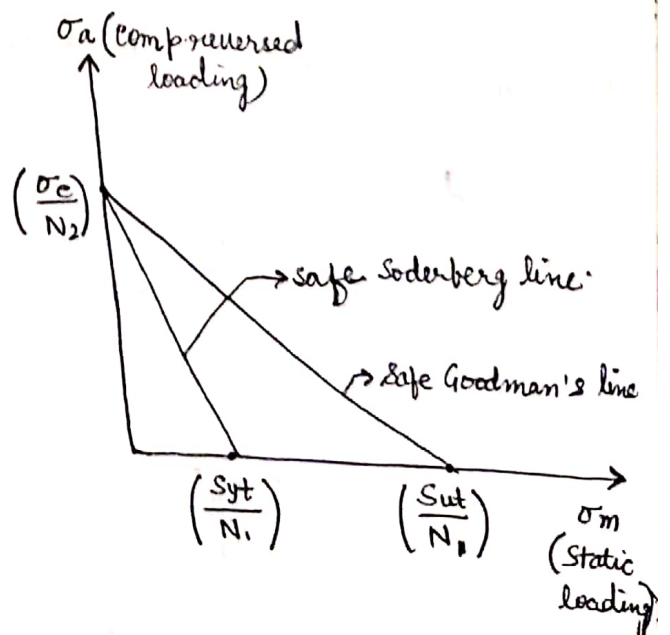 σa (comp.reversed
loading)
(σe/N2)
safe Soderberg line.
Safe Goodman's line
(Syt/N1)
(Sut/N1)
σm
(Static
loading)